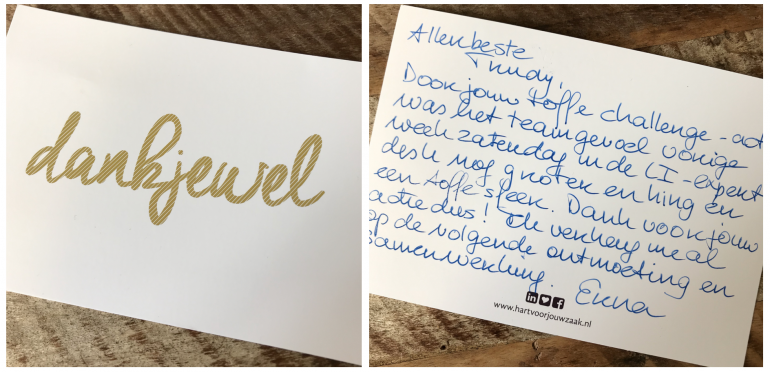 dankjewel
Allerbeste
Trudy,
Door jouw toffe challenge-act
was het teamgevoel vorige
week zaterdag in de LI-expert
desk nog groter en hing er
een toffe sfeer. Dank voor jouw
actie dus! Ik verheug me al
op de volgende ontmoeting en
samenwerking. Erna
in f
www.hartvoorjouwzaak.nl